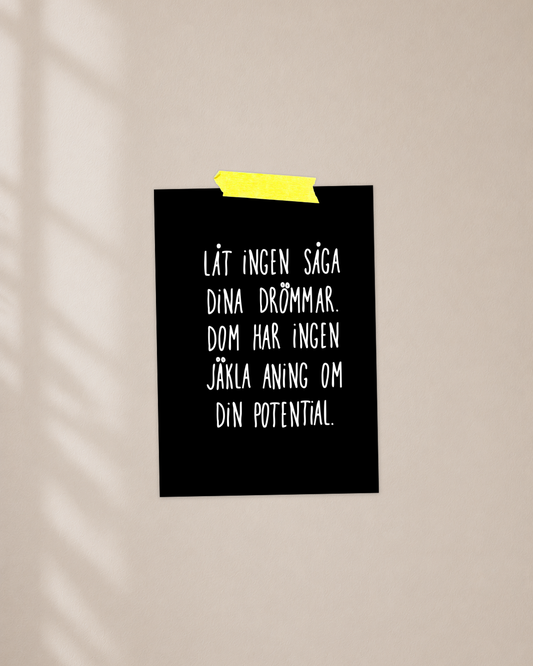 LÅT iNGEN SÅGA
DiNA DRÖMMAR.
DOM HAR iNGEN
JÄKLA ANiNG OM
DiN POTENTiAL.